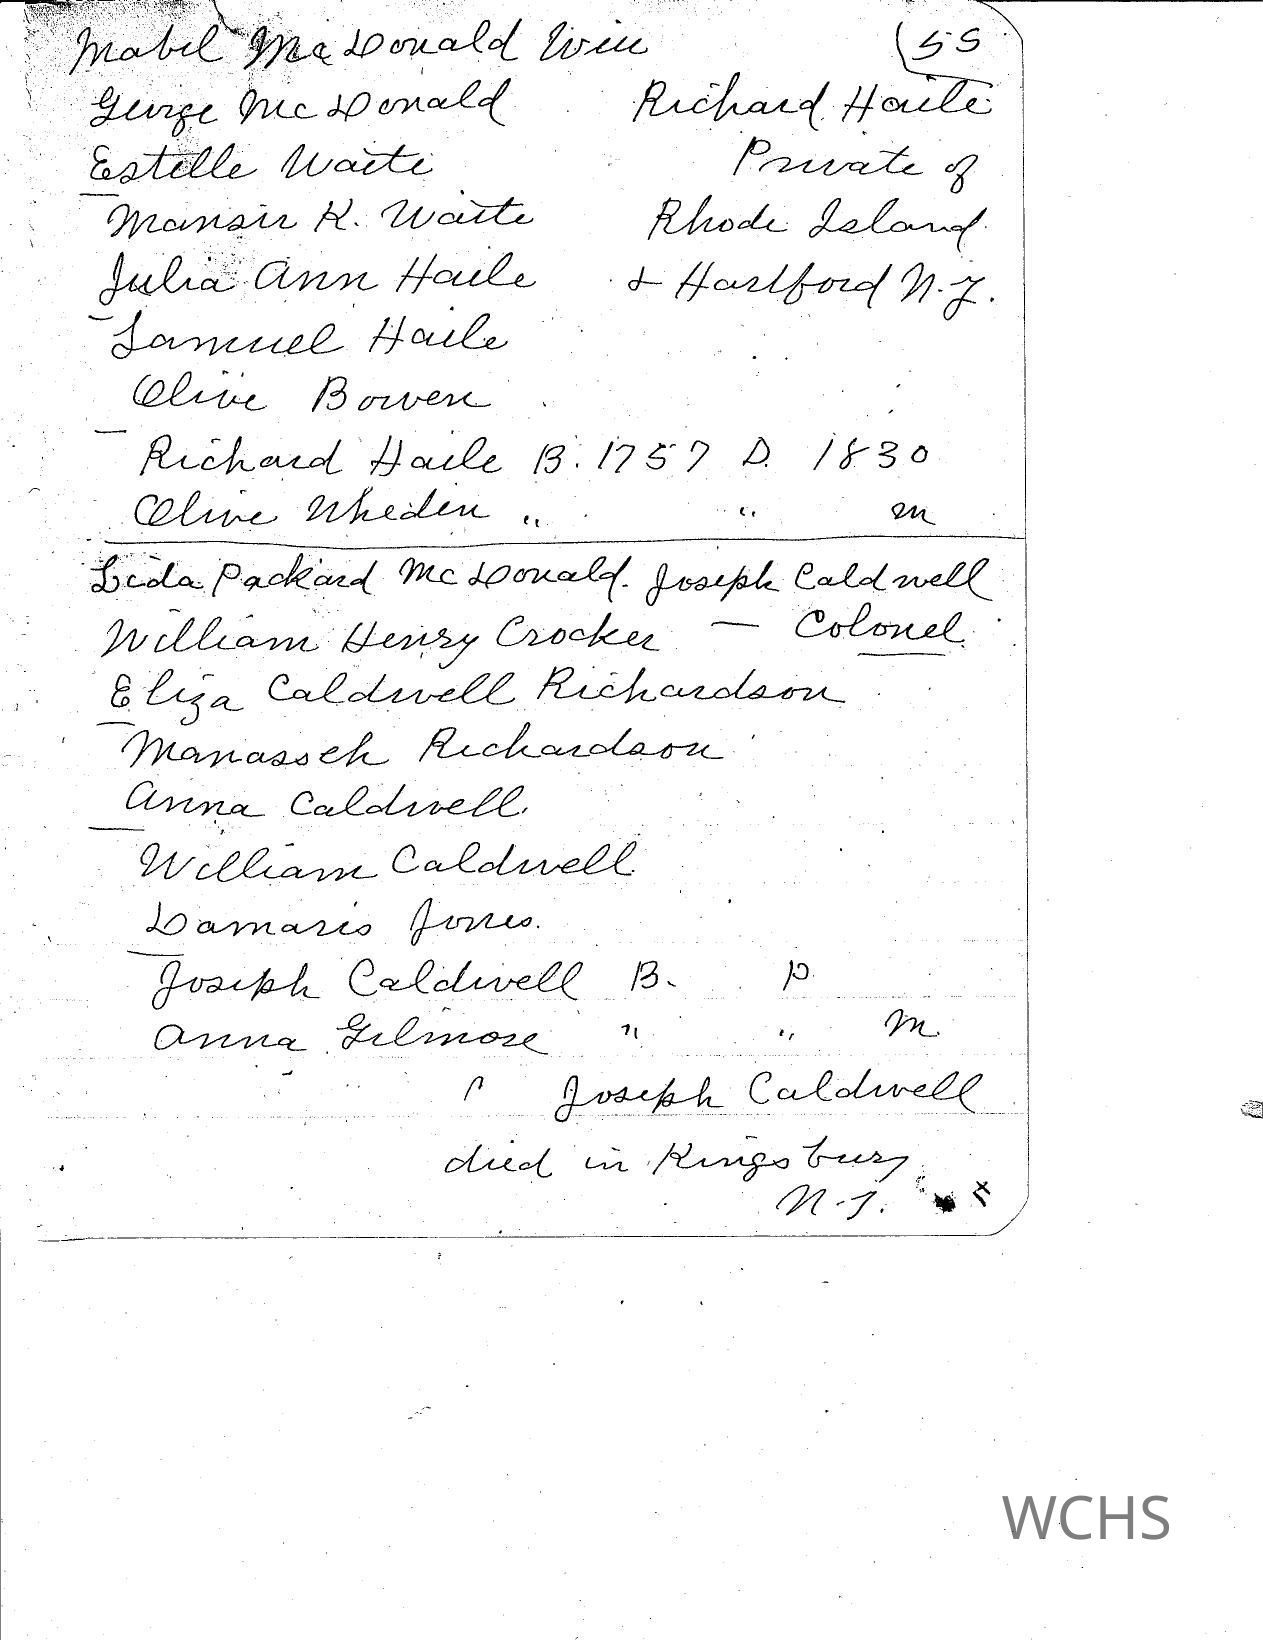 Mabel McDonald Win 55
George McDonald Richard Haile
Estelle Waite Private of
Mansir K. Waite Rhode Island
Julia Ann Haile & Hartford N.Y.
Samuel Haile
Olive Bowen
Richard Haile B. 1757 D. 1830
Olive Wheden " " m
Lida Packard McDonald. Joseph Caldwell
William Henry Crocker — Colonel
Eliza Caldwell Richardson
Manasseh Richardson
Anna Caldwell
William Caldwell
Damaris Jones.
Joseph Caldwell B. D.
Anna Gilmore " " m
Joseph Caldwell
died in Kingsbury
N.Y.
WCHS